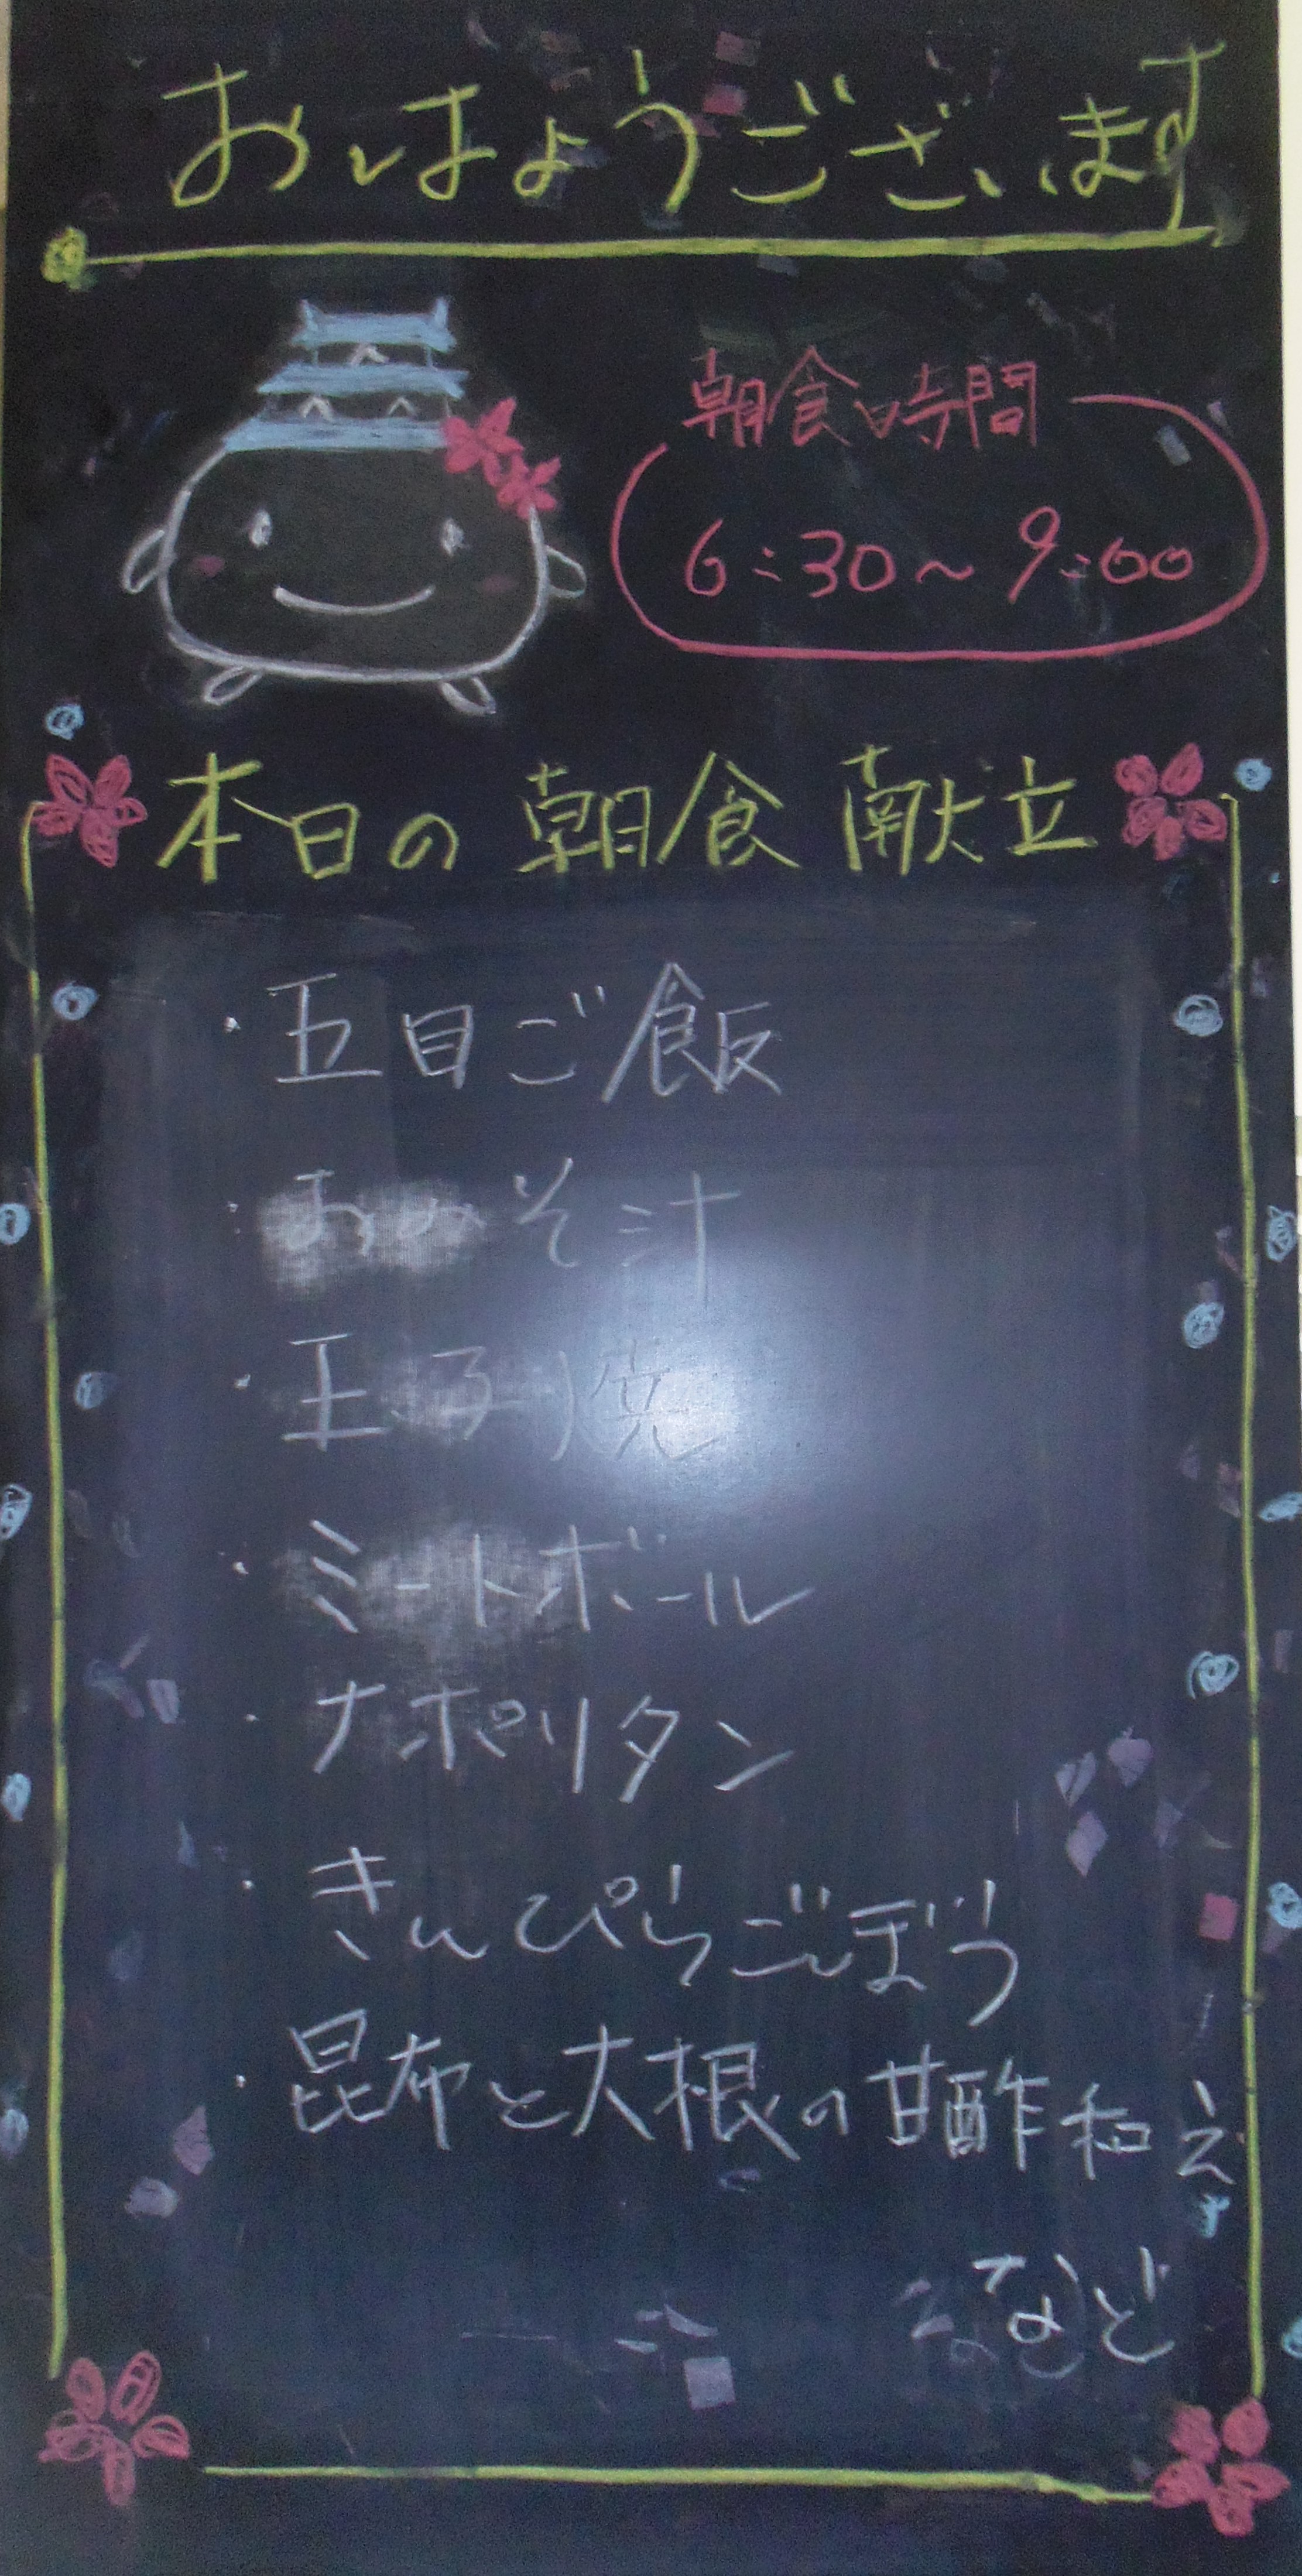 おはようございます
朝食時間
6:30～9:00
本日の朝食献立
・五目ご飯
・おみそ汁
・玉子焼
・ミートボール
・ナポリタン
・きんぴらごぼう
・昆布と大根の甘酢和え
など